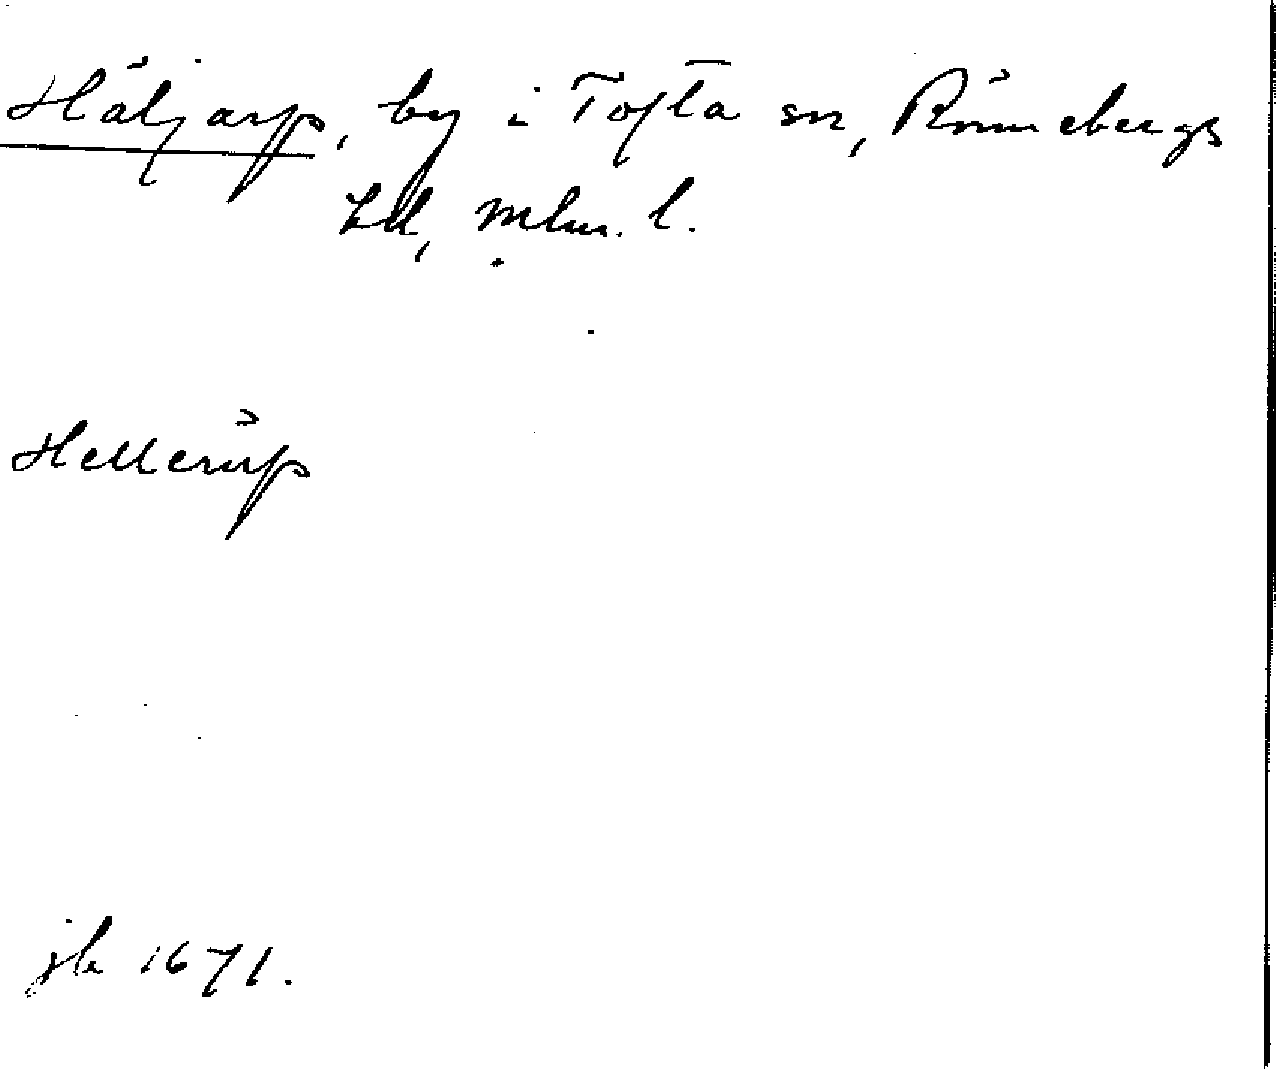 Häljarp, by i Tofta sn, Rönnebergs
hd, Mlm. l.
Hellerup
jb 1671.